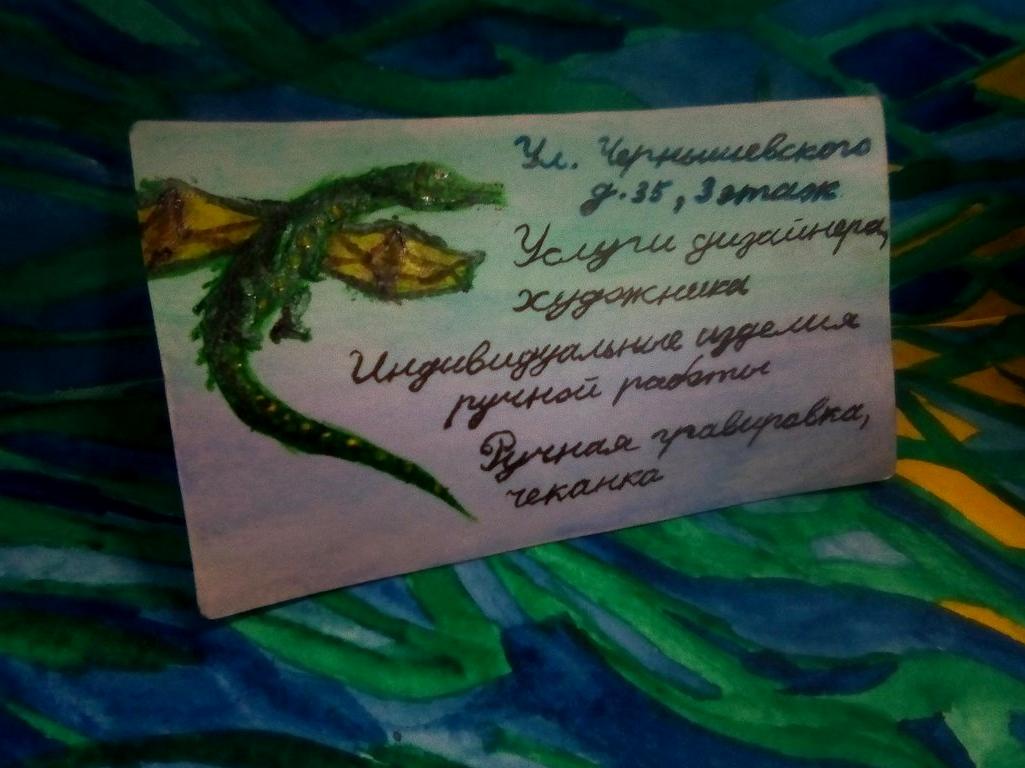 Ул. Чернышевского
д. 35, 3 этаж
Услуги дизайнера,
художника
Индивидуальные изделия
ручной работы
Ручная гравировка,
чеканка